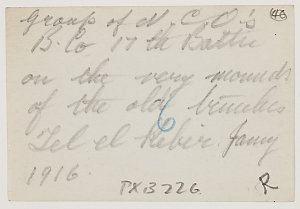 Group of N.C.O's
46
B. Co 17th Battn
on the very mounds
of the old trenches
6
Tel el Kebir. Jany
1916.
PXB226
R